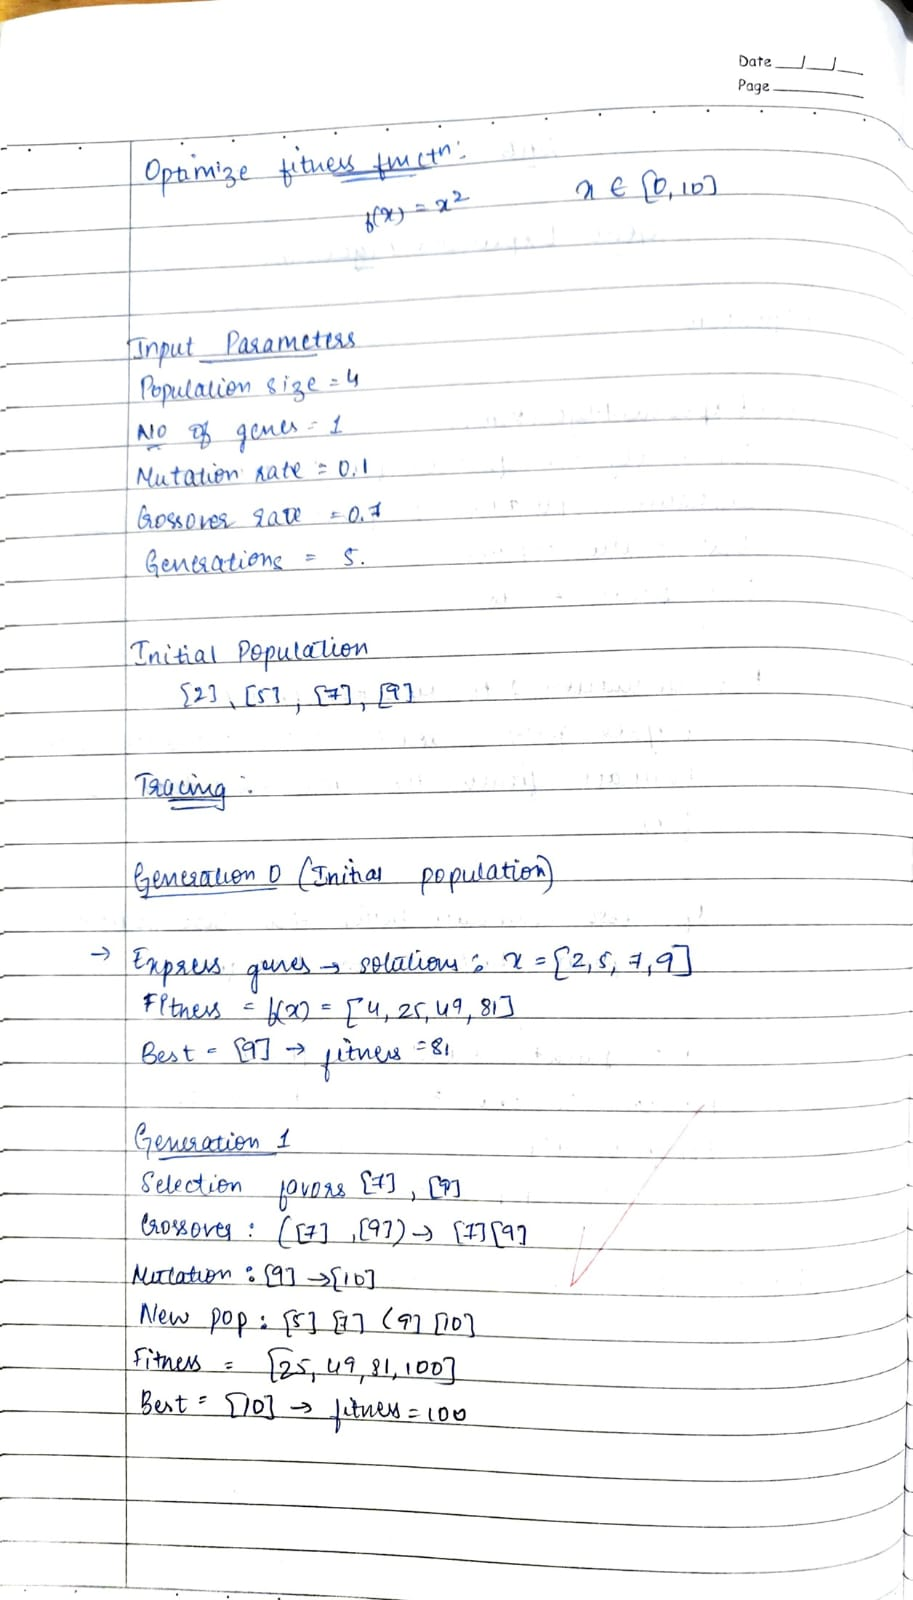 Date __/__/__
Page ________
Optimize fitness functn:
f(x) = x² x ∈ [0, 10]
Input Parameters
Population size = 4
No of genes = 1
Mutation rate = 0.1
Crossover rate = 0.7
Generations = 5.
Initial Population
[2], [5], [7], [9]
Tracing :
Generation 0 (Initial population)
→ Express genes → solutions : x = [2, 5, 7, 9]
Fitness = f(x) = [4, 25, 49, 81]
Best = [9] → fitness = 81
Generation 1
Selection favors [7], [9]
Crossover : ([7], [9]) → [7][9]
Mutation : [9] → [10]
New pop : [5] [7] [9] [10]
Fitness = [25, 49, 81, 100]
Best = [10] → fitness = 100